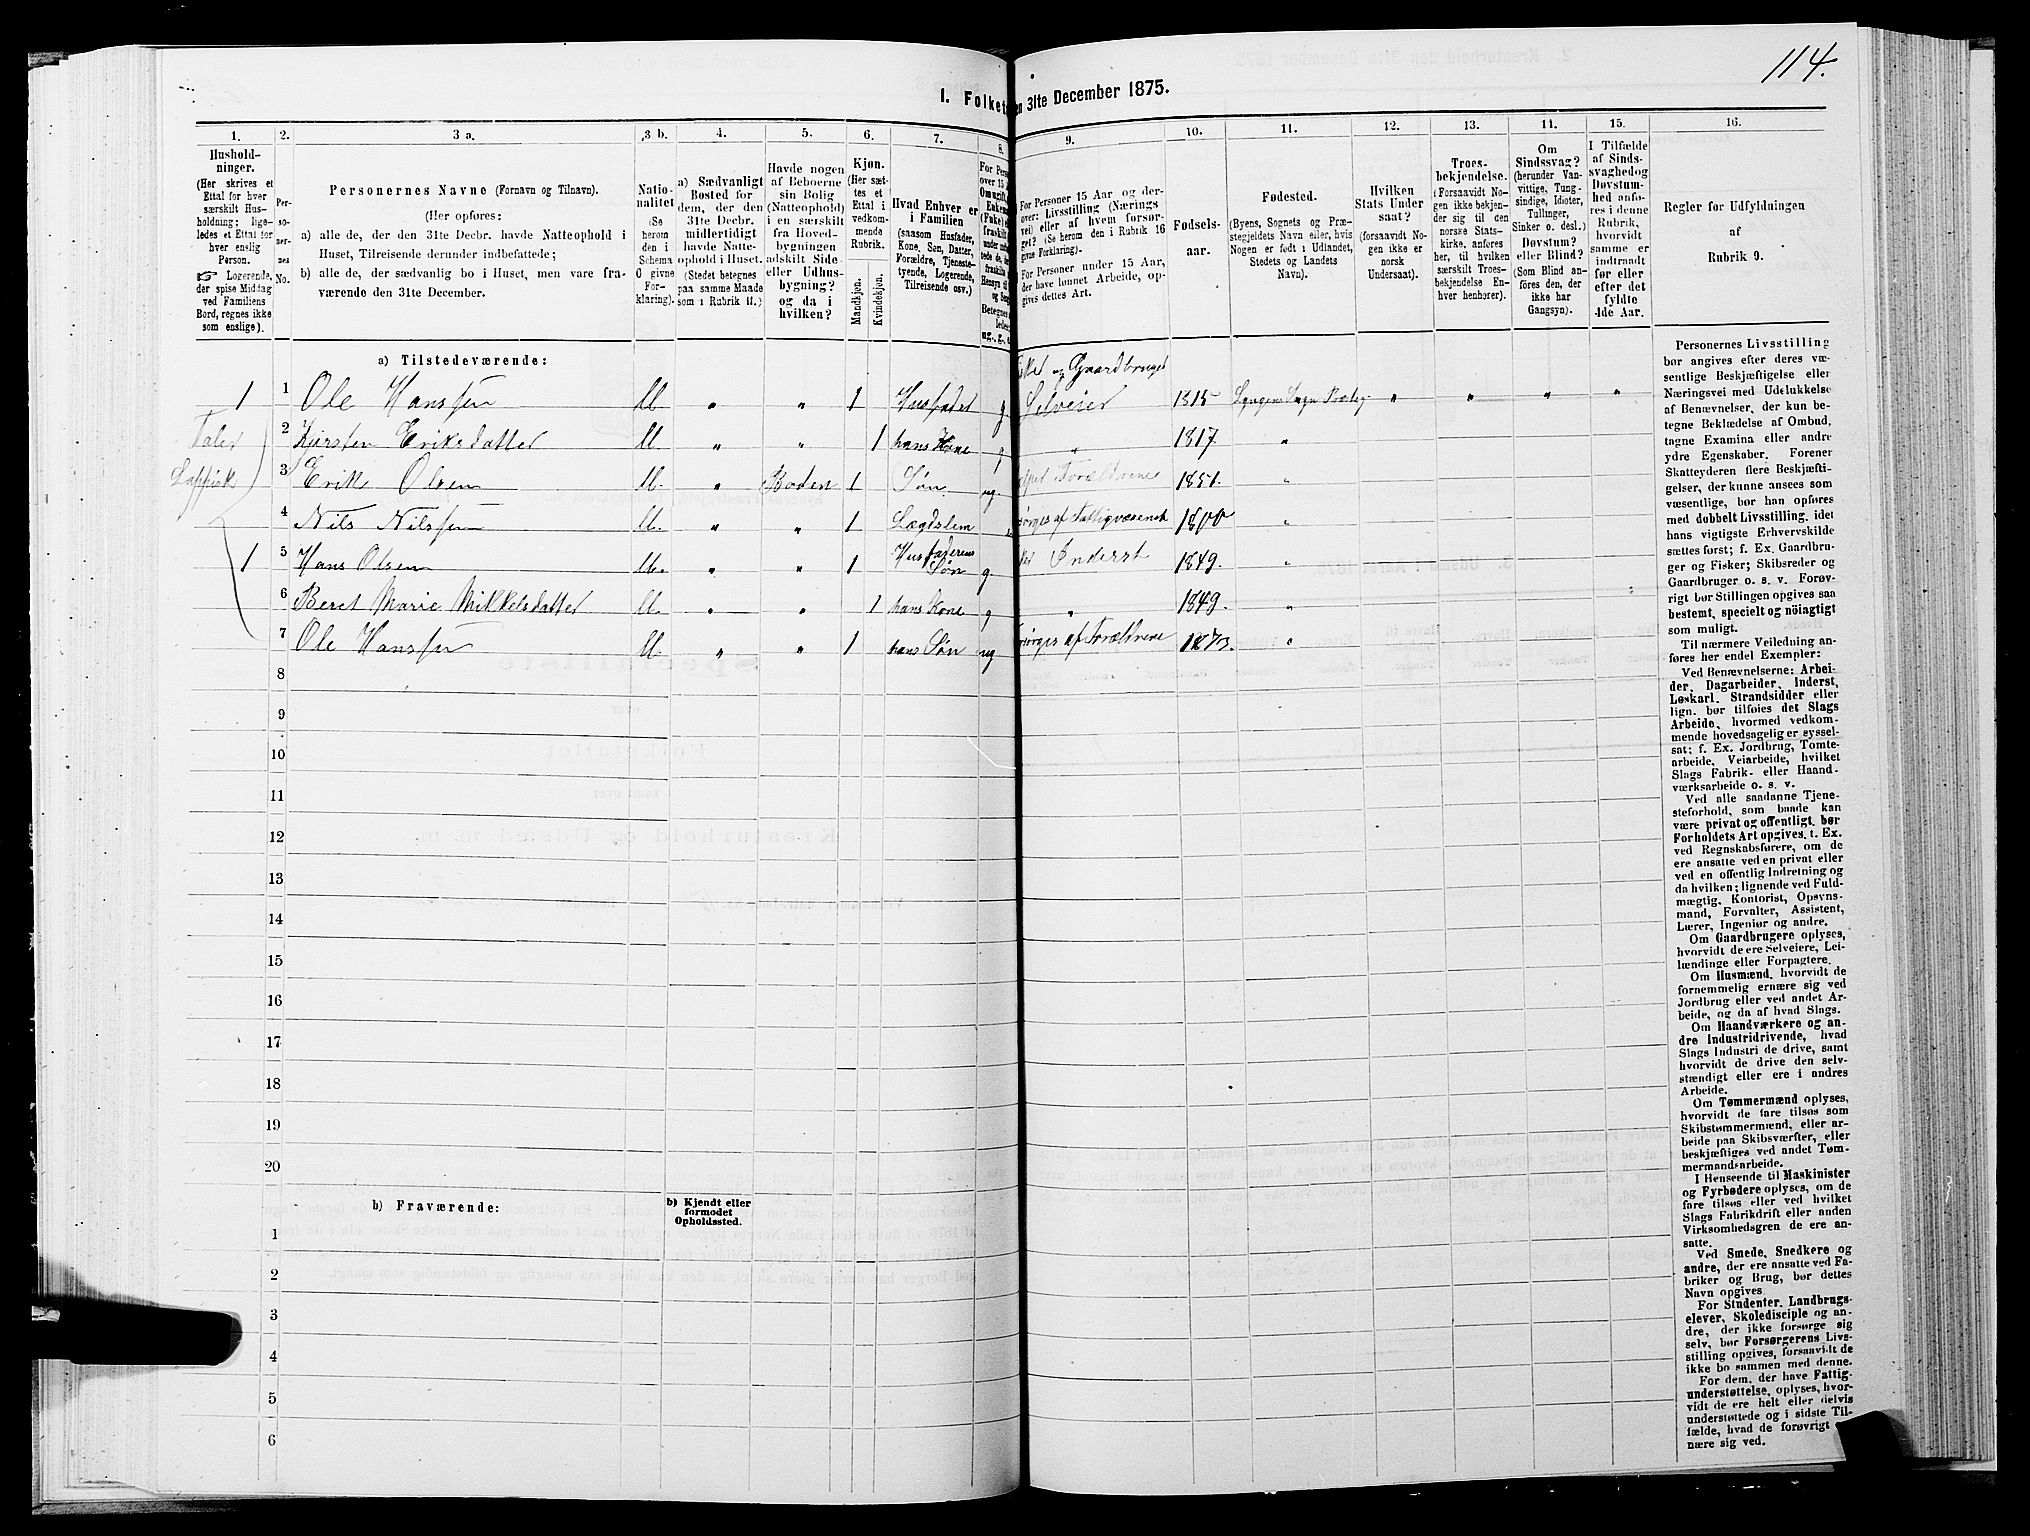 114.
I. Folket
en 31te December 1875.
1. 2. 3 a. 3 b. 4. 5. 6. 7. 8. 9. 10. 11. 12. 13. 14. 15. 16.
Hushold-
ninger.
(Her skrives et
Ettal for hver
særskilt Hus-
holdning; lige-
ledes et Ettal for
hver enslig
Person.
☞ Logerende,
der spise Middag
ved Familiens
Bord, regnes ikke
som enslige).
Per-
so-
ner-
nes
No.
Personernes Navne (Fornavn og Tilnavn).
(Her opføres:
a) alle de, der den 31te Decbr. havde Natteophold i
Huset, Tilreisende derunder indbefattede;
b) alle de, der sædvanlig bo i Huset, men vare fra-
værende den 31te December.
Natio-
nalitet
(Se
herom
den i
Schema
O givne
For-
klaring).
a) Sædvanligt
Bosted for
dem, der den
31te Decbr.
midlertidigt
havde Natte-
ophold i Huset.
(Stedet betegnes
paa samme Maade
som i Rubrik 11.)
Havde nogen
af Beboerne
sin Bolig
(Natteophold)
i en særskilt
fra Hoved-
bygningen
adskilt Side-
eller Udhus-
bygning?
og da i
hvilken?
Kjøn.
(Her sæt-
tes et
Ettal i
vedkom-
mende
Rubrik.
Mandkjøn.
Kvindekjøn.
Hvad Enhver er
i Familien
(saasom Husfader,
Kone, Søn, Datter,
Forældre, Tjeneste-
tyende, Logerende,
Tilreisende osv.)
For Personer 15 Aar og der-
over: Livsstilling (Nærings-
vei) eller af hvem forsør-
get? (Se herom den i Rubrik 16
givne Forklaring).
For Personer under 15 Aar,
der have lønnet Arbeide, op-
gives dettes Art.
Fødsels-
aar.
Fødested.
(Byens, Sognets og Præ-
stegjeldets Navn eller, hvis
Nogen er født i Udlandet,
Stedets og Landets
Navn).
Hvilken
Stats Under
saat?
(forsaavidt No-
gen ikke er
norsk
Undersaat).
Troes-
bekjendelse.
(Forsaavidt No-
gen ikke bekjen-
der sig til den
norske Stats-
kirke, anføres
her, til hvilken
særskilt Troes-
bekjendelse En-
hver henhører).
Om
Sindssvag?
(herunder Van-
vittige, Tung-
sindige, Idioter,
Tullinger,
Sinker o. desl.)
Døvstum?
eller Blind?
(Som Blind an-
føres den, der
ikke har
Gangsyn).
I Tilfælde
af Sinds-
svaghed og
Døvstum-
hed anfø-
res i denne
Rubrik,
hvorvidt
samme er
indtraadt
før eller
efter det
fyldte
4de Aar.
Regler for Udfyldningen
af
Rubrik 9.
a) Tilstedeværende:
1 1 Ole Hanssen M. " " 1 Husfader g. Fisker og Gaardbruger Selveier 1815 Lyngens Sogn Præstegj " " " "
Taler Lappisk
2 Kjersten Eriksdatter M " " 1 hans Kone g " 1817. "
3 Erik Olsen M. " Boden 1 Søn ug. Forældrene 1851. "
4 Nils Nilssen M. " " 1 Lægdslem af Fattigvæsenet 1800 "
1 5 Hans Olsen M. " " 1 Husfaderens Søn g. Inderst 1849. "
6 Beret Marie Mikkelsdatter M. " " 1 hans Kone g " 1849. "
7 Ole Hanssen M. " " 1 hans Søn ug af Forældrene 1873. "
8
9
10
11
12
13
14
15
16
17
18
19
20
b) Fraværende:
b) Kjendt eller
formodet
Opholdssted.
1
2
3
4
5
6
Personernes Livsstilling
bør angives efter deres væ-
sentlige Beskjæftigelse eller
Næringsvei med Udelukkelse
af Benævnelser, der kun be-
tegne Beklædelse af Ombud,
tagne Examina eller andre
ydre Egenskaber. Forener
Skatteyderen flere Beskjæfti-
gelser, der kunne ansees som
væsentlige, bør han opføres
med dobbelt Livsstilling, idet
hans vigtigste Erhvervskilde
sættes først; f. Ex. Gaardbru-
ger og Fisker; Skibsreder og
Gaardbruger o. s. v. Forøv-
rigt bør Stillingen opgives saa
bestemt, specielt og nöiagtigt
som muligt.
Til nærmere Veiledning an-
føres her endel Exempler:
Ved Benævnelserne: Arbei-
der, Dagarbeider, Inderst,
Løskarl, Strandsidder eller
lign. bør tilføies det Slags
Arbeide, hvormed vedkom-
mende hovedsagelig er syssel-
sat; f. Ex. Jordbrug, Tomte-
arbeide, Veiarbeide, hvilket
Slags Fabrik- eller Haand-
værksarbeide o. s. v.
Ved alle saadanne Tjene-
steforhold, som baade kan
være privat og offentligt, bør
Forholdets Art opgives, t. Ex.
ved Regnskabsførere, om de
ere ansatte ved en privat eller
ved en offentlig Indretning og
da hvilken; lignende ved Fuld-
mægtig, Kontorist, Opsyns-
mand, Forvalter, Assistent,
Lærer, Ingeniør og andre.
Om Gaardbrugere oplyses,
hvorvidt de ere Selveiere, Lei-
lændinge eller Forpagtere.
Om Husmænd, hvorvidt de
fornemmelig ernære sig ved
Jordbrug eller ved andet Ar-
beide, og da af hvad Slags.
Om Haandværkere og an-
dre Industridrivende, hvad
Slags Industri de drive, samt
hvorvidt de drive den selv-
stændigt eller ere i andres
Arbeide.
Om Tømmermænd oplyses,
hvorvidt de fare tilsøs som
Skibstømmermænd, eller ar-
beide paa Skibsværfter, eller
beskjæftiges ved andet Tøm-
mermandsarbeide.
I Henseende til Maskinister
og Fyrbødere oplyses, om de
fare tilsøs eller ved hvilket
Slags Fabrikdrift eller anden
Virksomhedsgren de ere an-
satte.
Ved Smede, Snedkere og
andre, der ere ansatte ved Fa-
briker og Brug, bør dettes
Navn opgives.
For Studenter, Landbrugs-
elever, Skoledisciple og an-
dre, der ikke forsørge sig
selv, bør Forsørgerens Livs-
stilling opgives, forsaavidt de
ikke bo sammen med denne.
For dem, der have Fattig-
understøttelse, oplyses, hvor-
vidt de ere helt eller delvis
understøttede og i sidste Til-
fælde, hvad de forøvrigt er-
nære sig ved.